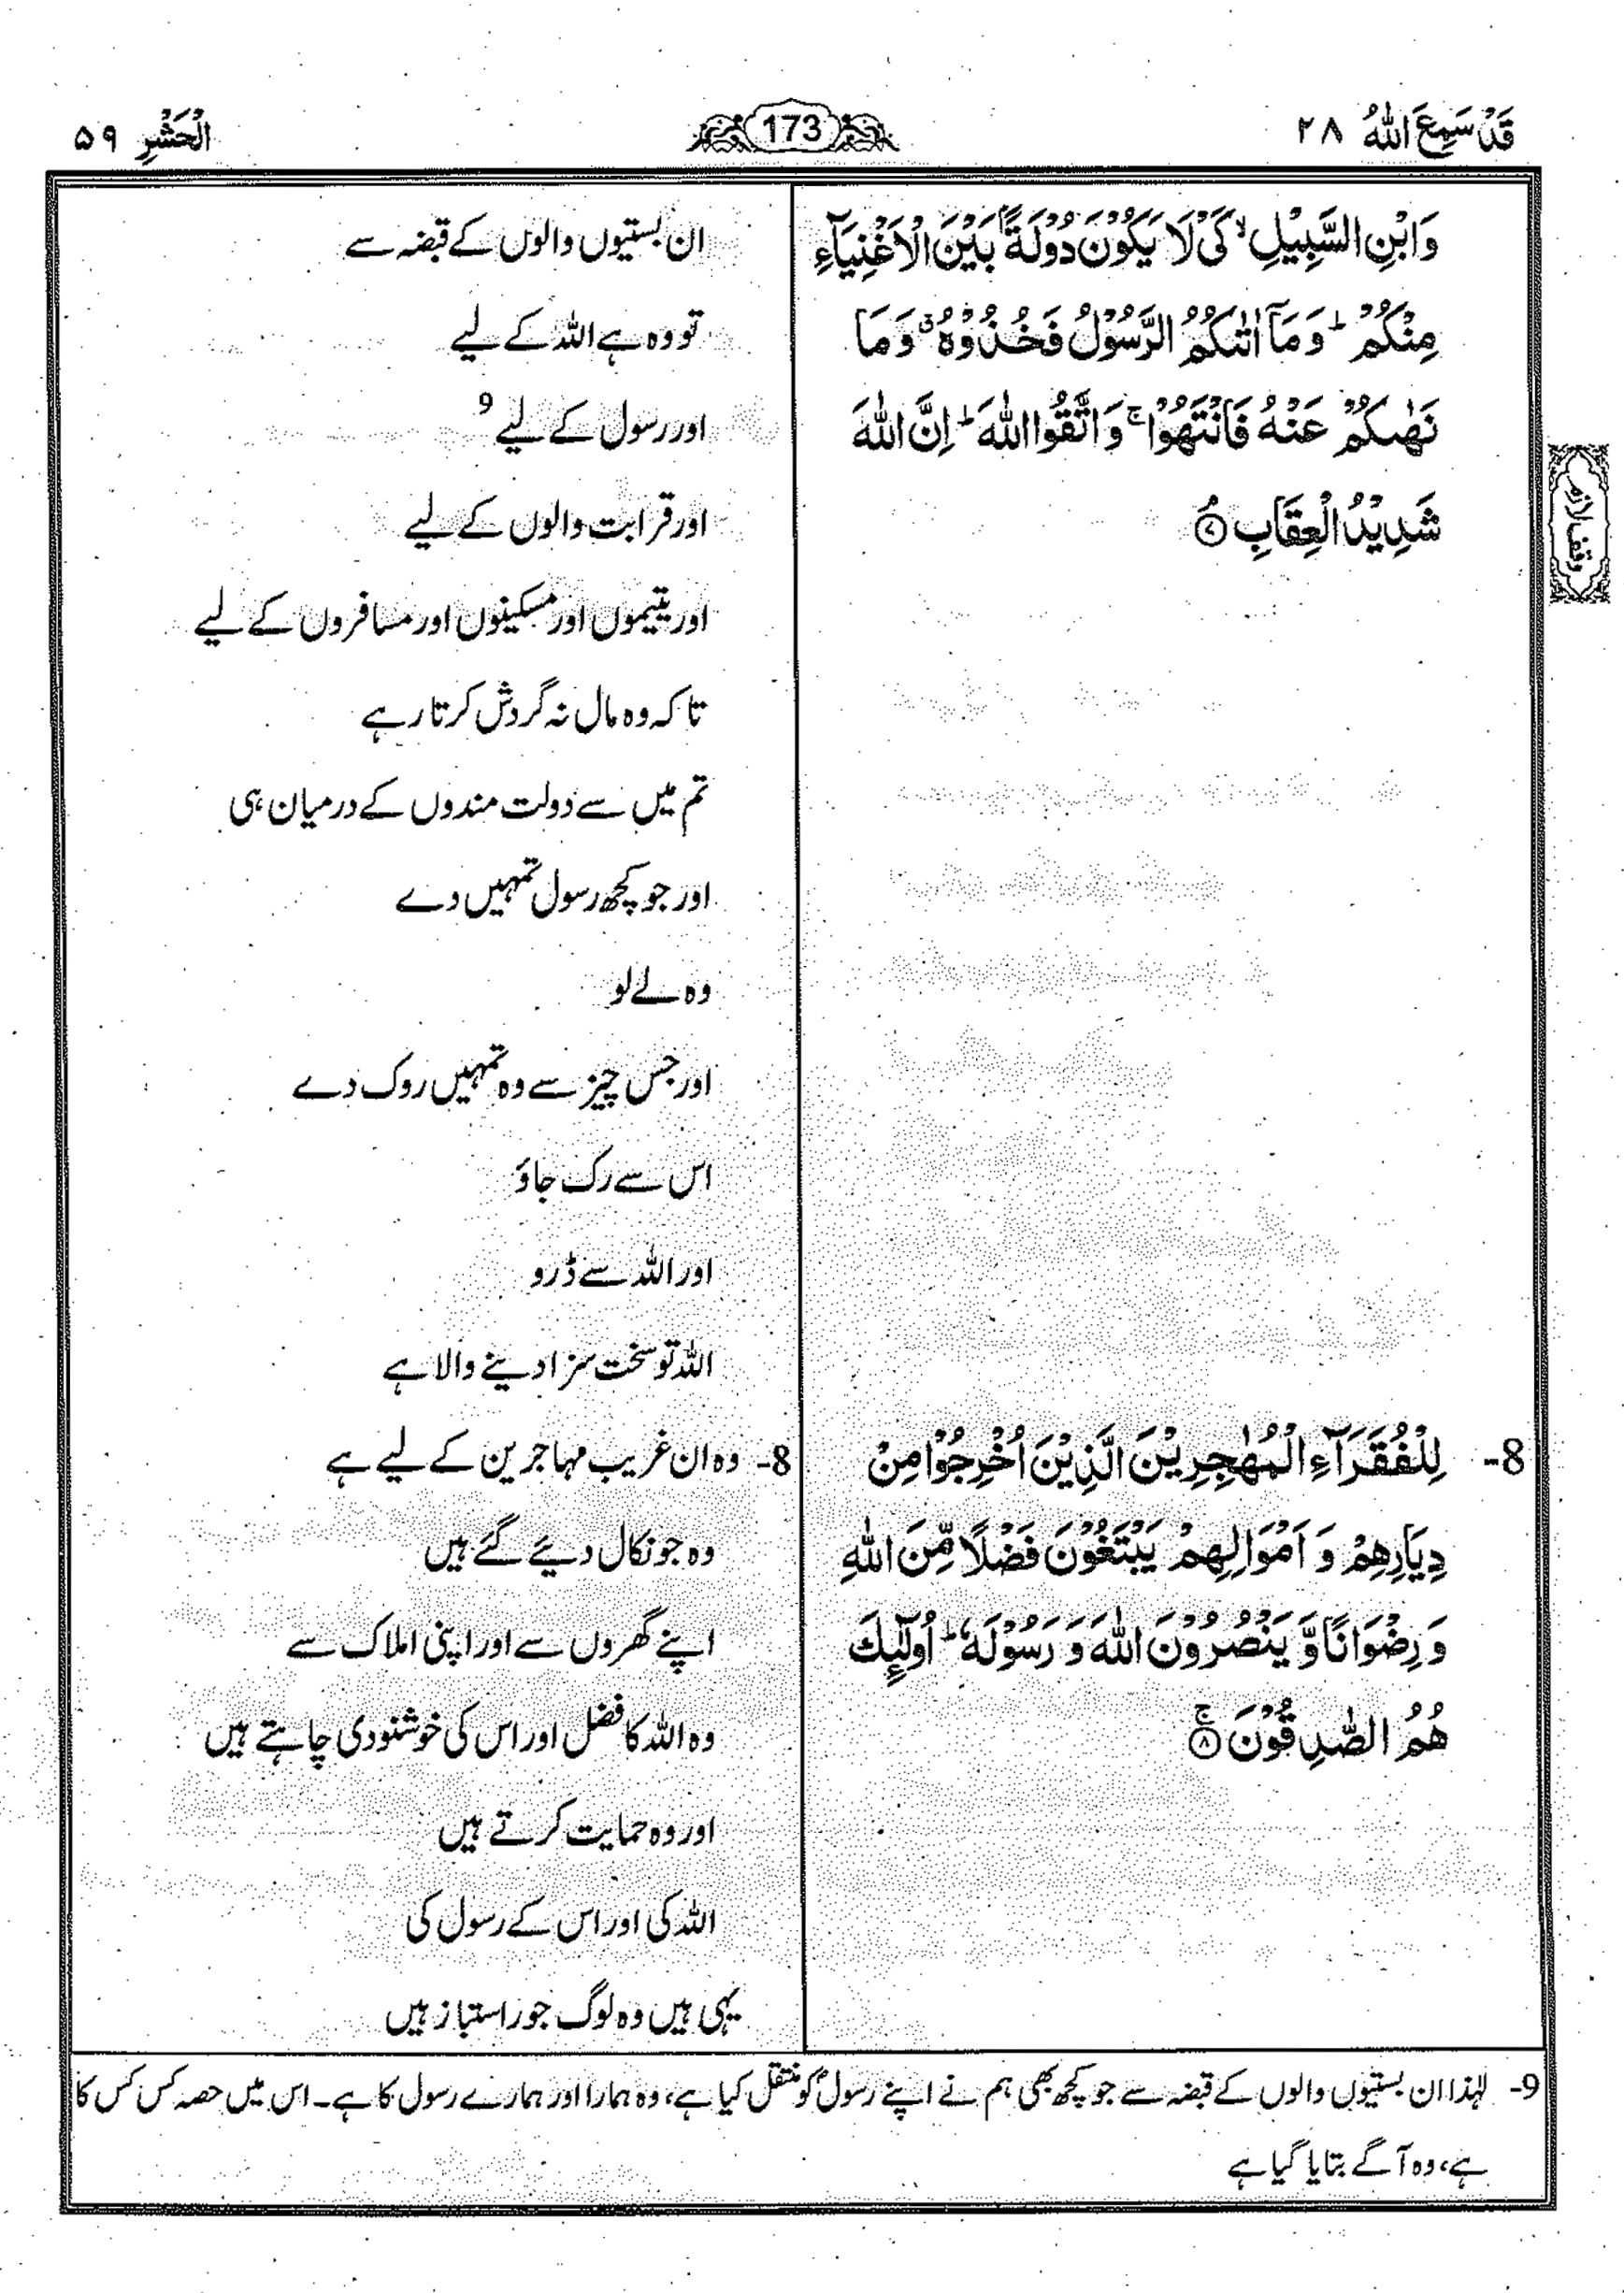 قَدْ سَمِعَ اللّٰهُ ۲۸
173
الْحَشْرِ ۵۹
وَابْنِ السَّبِيْلِ ۙ كَیْ لَا يَكُوْنَ دُوْلَةًۢ بَيْنَ الْاَغْنِيَآءِ
مِنْكُمْ ؕ وَ مَاۤ اٰتٰىكُمُ الرَّسُوْلُ فَخُذُوْهُ ۗ وَ مَا
نَهٰىكُمْ عَنْهُ فَانْتَهُوْا ۚ وَ اتَّقُوا اللّٰهَ ؕ اِنَّ اللّٰهَ
شَدِيْدُ الْعِقَابِ ۘ ﴿۷﴾
وقف لازم
ان بستیوں والوں کے قبضہ سے
تو وہ ہے اللہ کے لیے
اور رسول کے لیے 9
اور قرابت والوں کے لیے
اور یتیموں اور مسکینوں اور مسافروں کے لیے
تاکہ وہ مال نہ گردش کرتا رہے
تم میں سے دولت مندوں کے درمیان ہی
اور جو کچھ رسول تمہیں دے
وہ لے لو
اور جس چیز سے وہ تمہیں روک دے
اس سے رک جاؤ
اور اللہ سے ڈرو
اللہ تو سخت سزا دینے والا ہے
8- لِلْفُقَرَآءِ الْمُهٰجِرِيْنَ الَّذِيْنَ اُخْرِجُوْا مِنْ
دِيَارِهِمْ وَ اَمْوَالِهِمْ يَبْتَغُوْنَ فَضْلًا مِّنَ اللّٰهِ
وَ رِضْوَانًا وَّ يَنْصُرُوْنَ اللّٰهَ وَ رَسُوْلَهٗ ؕ اُولٰٓئِكَ
هُمُ الصّٰدِقُوْنَ ۚ ﴿۸﴾
8- وہ ان غریب مہاجرین کے لیے ہے
وہ جو نکال دیئے گئے ہیں
اپنے گھروں سے اور اپنی املاک سے
وہ اللہ کا فضل اور اس کی خوشنودی چاہتے ہیں
اور وہ حمایت کرتے ہیں
اللہ کی اور اس کے رسول کی
یہی ہیں وہ لوگ جو راستباز ہیں
9- لہٰذا ان بستیوں والوں کے قبضہ سے جو کچھ بھی ہم نے اپنے رسولؐ کو منتقل کیا ہے، وہ ہمارا اور ہمارے رسول کا ہے۔ اس میں حصہ کس کس کا
ہے، وہ آگے بتایا گیا ہے